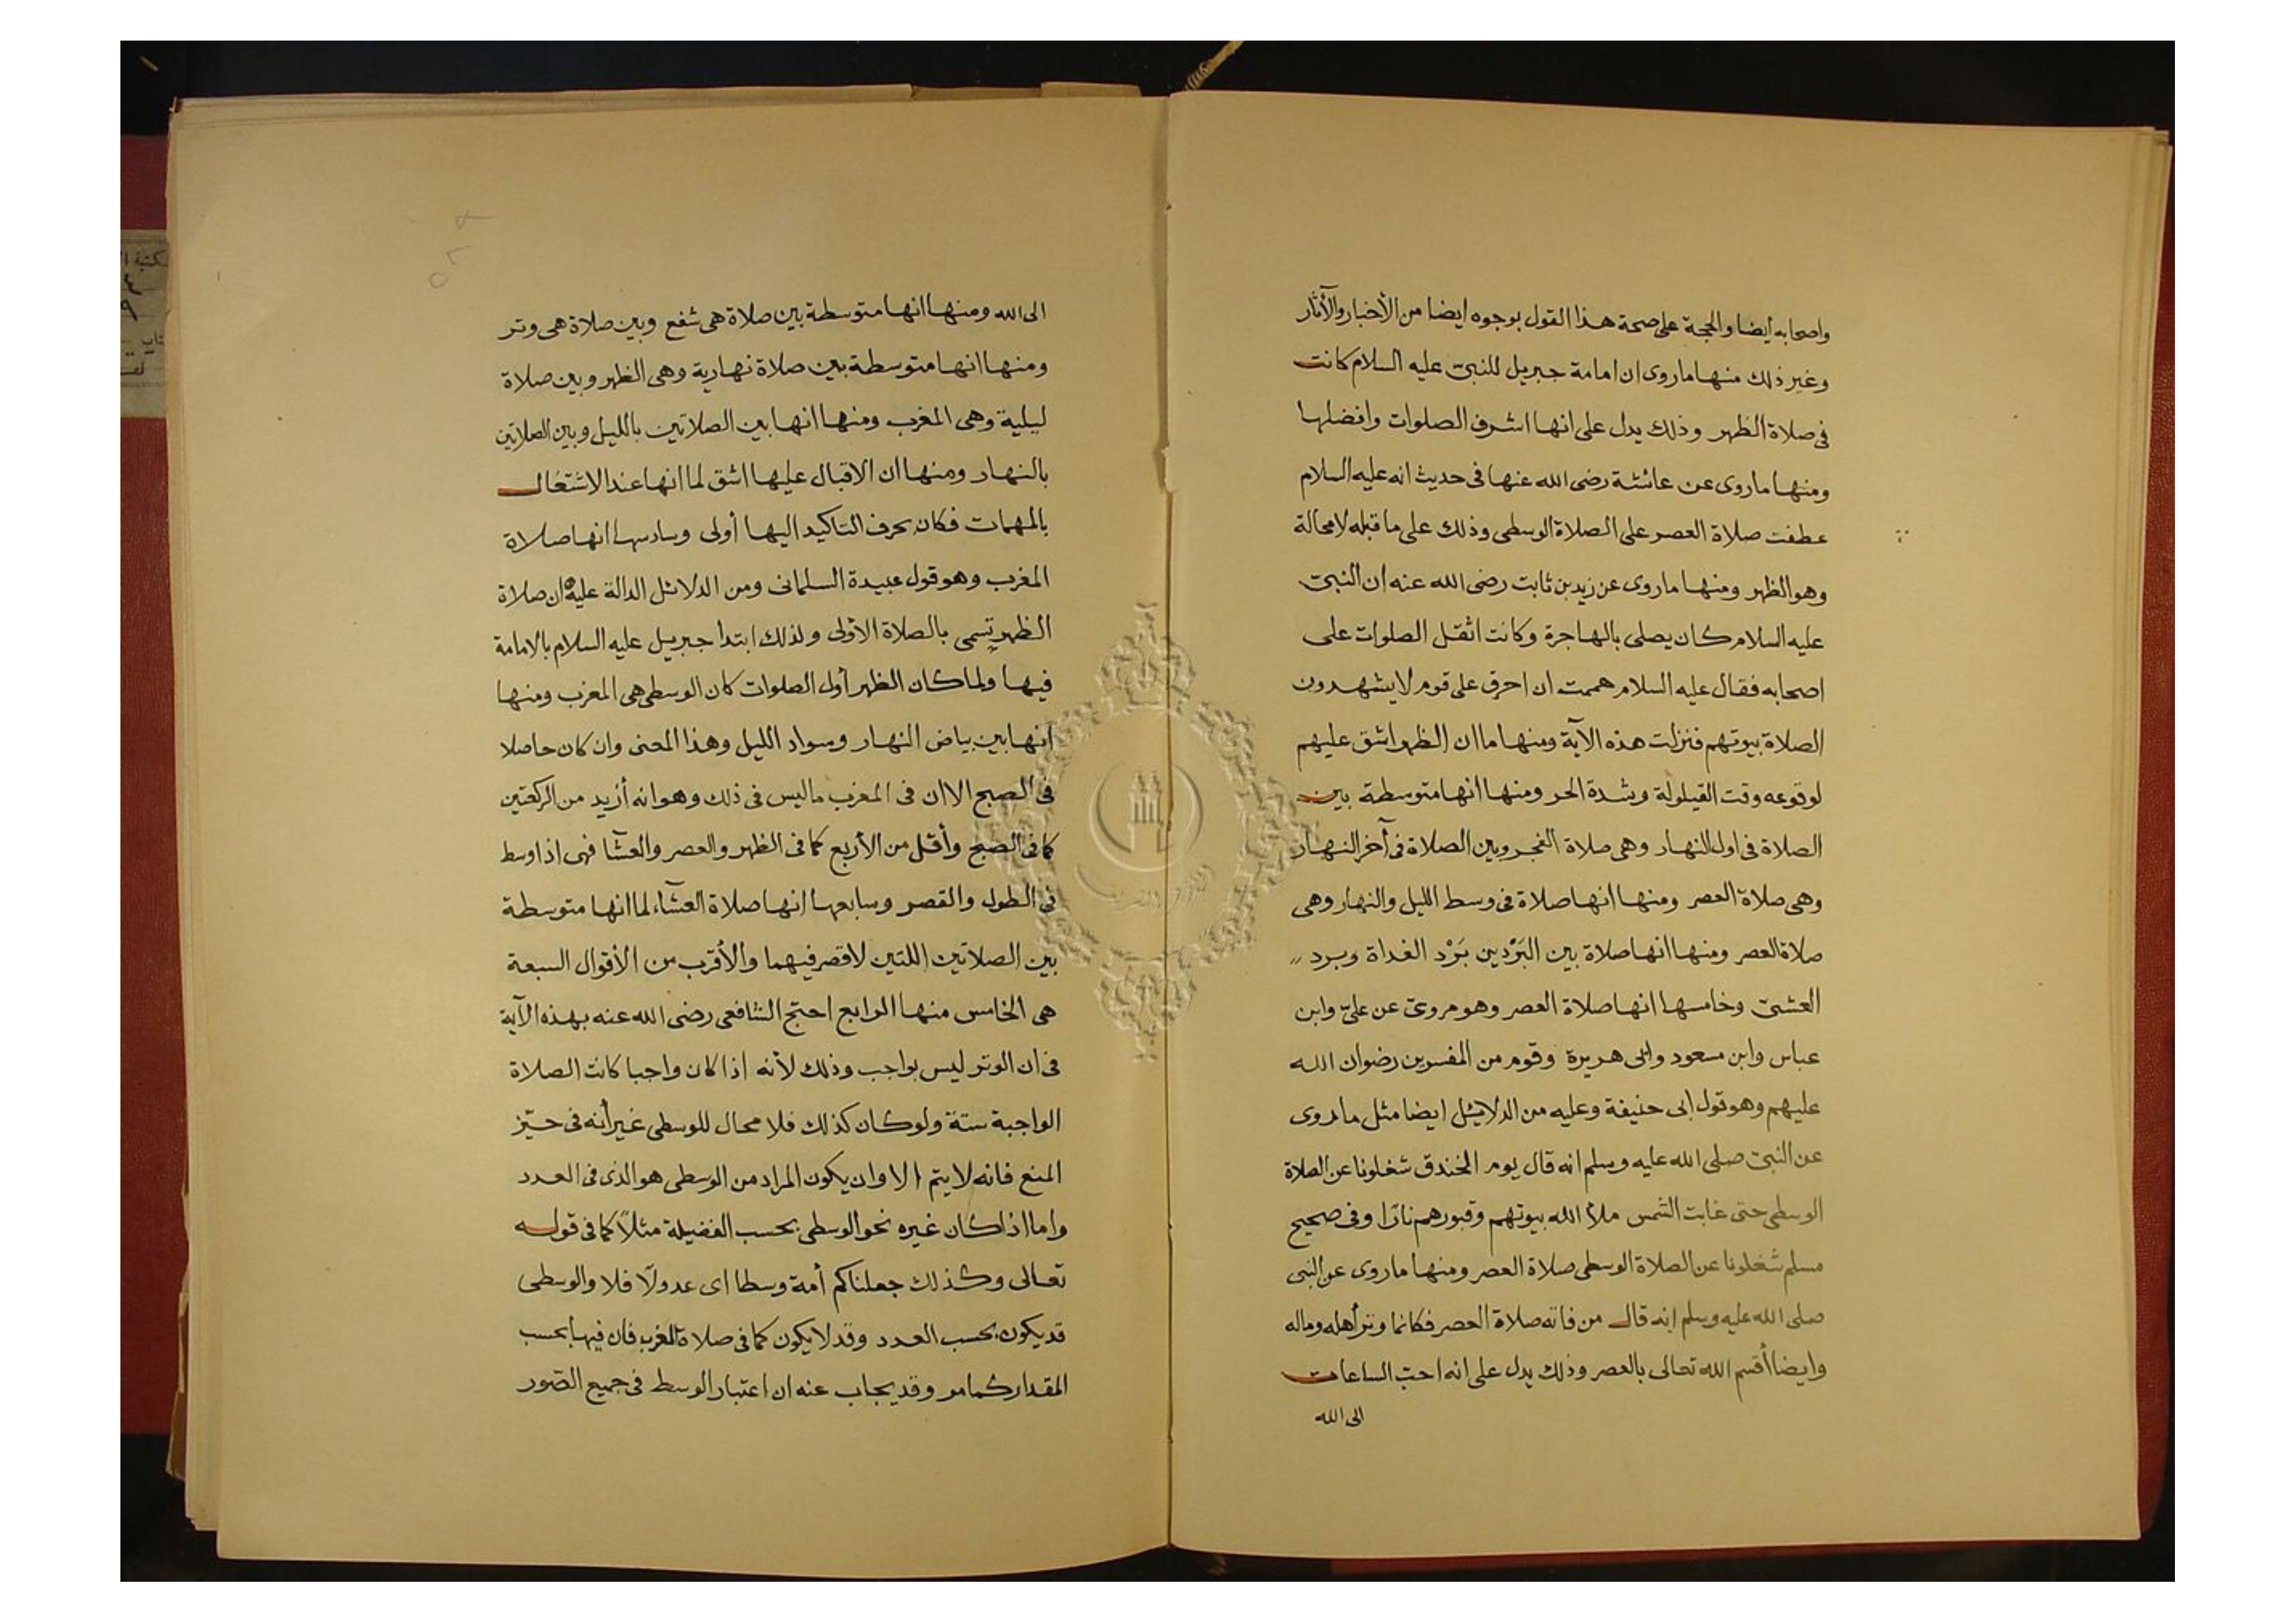 واصحابه أيضا والحجة على صحة هذا القول بوجوه ايضا من الأخبار والآثار
وغير ذلك منها ماروى ان امامة جبريل للنبىّ عليه السلام كانت
فى صلاة الظهر وذلك يدل على انها اشرف الصلوات وافضلها
ومنها ماروى عن عائشة رضى الله عنها فى حديث انه عليه السلام
عطفت صلاة العصر على الصلاة الوسطى وذلك على ما قبله لا محالة
وهو الظهر ومنها ماروى عن زيد بن ثابت رضى الله عنه ان النبىّ
عليه السلام كان يصلى بالهاجرة وكانت اثقل الصلوات على
اصحابه فقال عليه السلام هممت ان احرق على قوم لا يشهدون
الصلاة بيوتهم فنزلت هذه الآية ومنها ما ان الظهر اشق عليهم
لوقوعه وقت القيلولة وشدة الحر ومنها انها متوسطة بين
الصلاة فى اول النهار وهى صلاة الفجر وبين الصلاة فى آخر النهار
وهى صلاة العصر ومنها انها صلاة فى وسط الليل والنهار وهى
صلاة العصر ومنها انها صلاة بين البَرْدين بَرْد الغداة وبرد
العشىّ وخامسها انها صلاة العصر وهو مروىّ عن علىّ وابن
عباس وابن مسعود وابى هريرة وقوم من المفسرين رضوان الله
عليهم وهو قول ابى حنيفة وعليه من الدلائل ايضا مثل ماروى
عن النبىّ صلى الله عليه وسلم انه قال يوم الخندق شغلونا عن الصلاة
الوسطى حتى غابت الشمس ملأ الله بيوتهم وقبورهم نارًا وفى صحيح
مسلم شغلونا عن الصلاة الوسطى صلاة العصر ومنها ماروى عن النبى
صلى الله عليه وسلم انه قال من فاته صلاة العصر فكانما وتر أهله وماله
وايضا أقسم الله تعالى بالعصر وذلك يدل على انه احبّ الساعات
الى الله
الى الله ومنها انها متوسطة بين صلاة هى شفع وبين صلاة هى وتر
ومنها انها متوسطة بين صلاة نهارية وهى الظهر وبين صلاة
ليلية وهى المغرب ومنها انها بين الصلاتين بالليل وبين الصلاتين
بالنهار ومنها ان الاقبال عليها اشق لما انها عند الاشتغال
بالمهمات فكان بحرف التاكيد اليها أولى وسادسها انها صلاة
المغرب وهو قول عبيدة السلمانى ومن الدلائل الدالة عليه ان صلاة
الظهر تسمى بالصلاة الأولى ولذلك ابتدا جبريل عليه السلام بالامامة
فيها ولما كان الظهر أول الصلوات كان الوسطى هى المغرب ومنها
انها بين بياض النهار وسواد الليل وهذا المعنى وان كان حاصلا
فى الصبح الا ان فى المغرب ماليس فى ذلك وهو انه أزيد من الركعتين
كما فى الصبح وأقل من الأربع كما فى الظهر والعصر والعشا فهى اذا وسط
فى الطول والقصر وسابعها انها صلاة العشآء لما انها متوسطة
بين الصلاتين اللتين لا قصر فيهما والأقرب من الأقوال السبعة
هى الخامس منها الرابع احتج الشافعى رضى الله عنه بهذه الآية
فى ان الوتر ليس بواجب وذلك لأنه اذا كان واجبا كانت الصلاة
الواجبة ستة ولو كان كذلك فلا محال للوسطى غير أنه فى حيّز
المنع فانه لا يتم الا وان يكون المراد من الوسطى هو الذى فى العدد
واما اذا كان غيره نحو الوسطى بحسب الفضيلة مثلاً كما فى قوله
تعالى وكذلك جعلناكم أمة وسطا اى عدولًا فلا والوسطى
قد يكون بحسب العدد وقد لا يكون كما فى صلاة المغرب فان فيها بحسب
المقدار كما مر وقد يجاب عنه ان اعتبار الوسط فى جميع الصّور